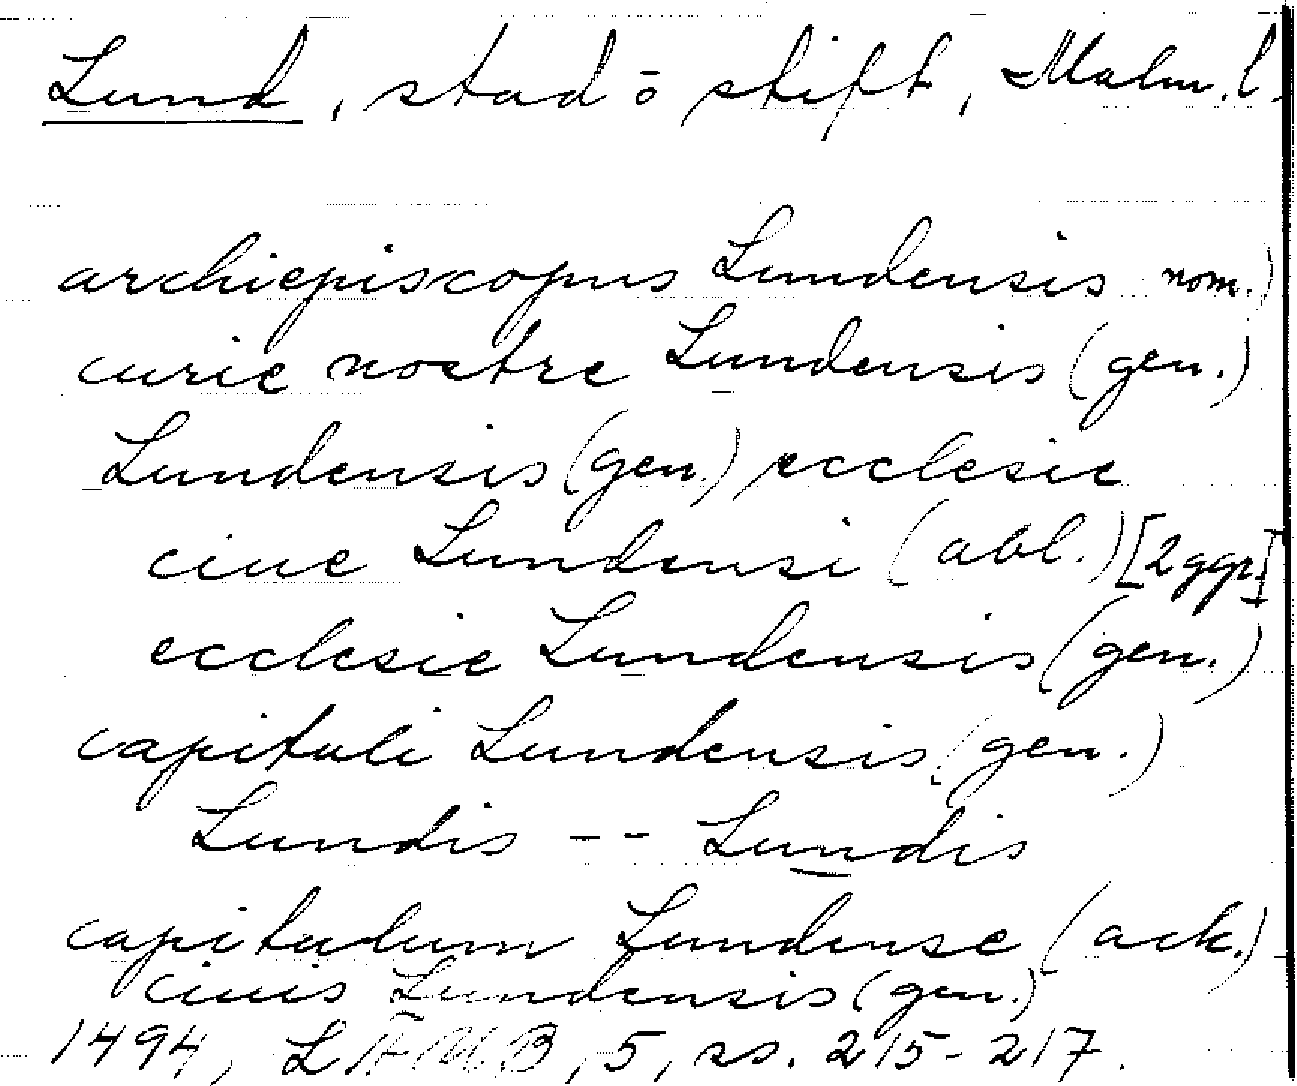 Lund, stad o. stift, Malm. l.
archiepiscopus Lundensis nom.)
curie nostre Lundensis (gen.)
Lundensis (gen.) ecclesie
ciue Lundensi (abl.) [2 ggr.]
ecclesie Lundensis (gen.)
capituli Lundensis (gen.)
Lundis -- Lundis
capitulum Lundense (ack.)
ciuis Lundensis (gen.)
1494, LÄUB, 5, ss. 215-217.